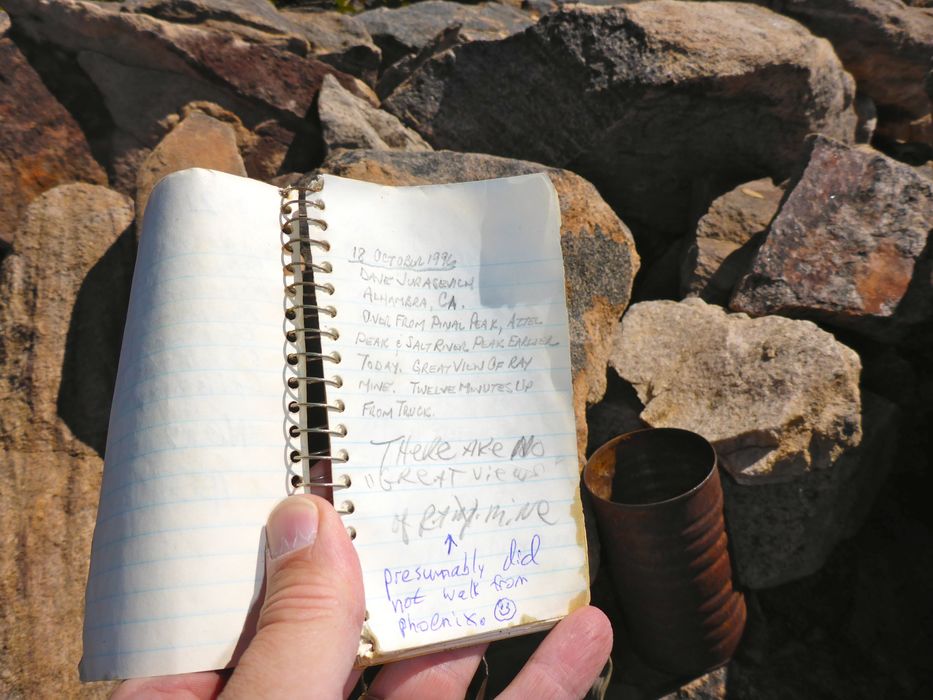 18 OCTOBER 1996
DAVE JURASEVICH
ALHAMBRA, CA.
OVER FROM PINAL PEAK, AZTEC
PEAK & SALT RIVER PEAK EARLIER
TODAY. GREAT VIEW OF RAY
MINE. TWELVE MINUTES UP
FROM TRUCK.
THERE ARE NO
"GREAT VIEWS"
of RAY MINE
presumably did
not walk from
phoenix.